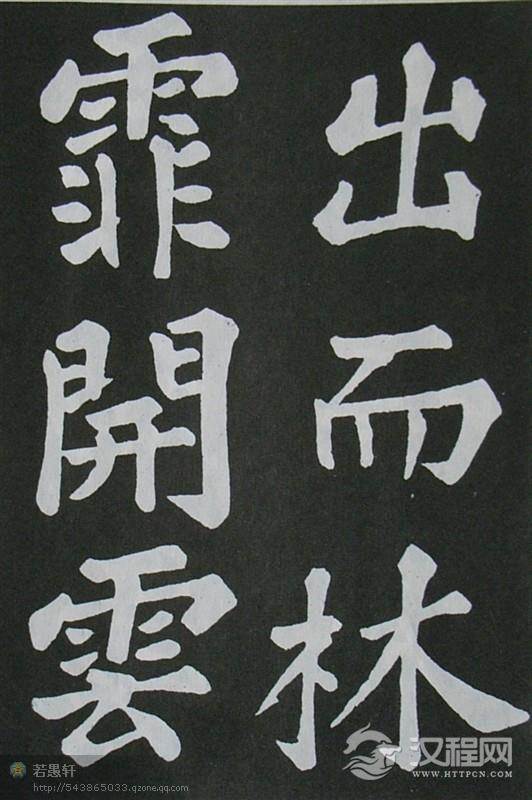 出而林
霏開雲
若愚轩
http://543865033.qzone.qq.com
汉程网
WWW.HTTPCN.COM